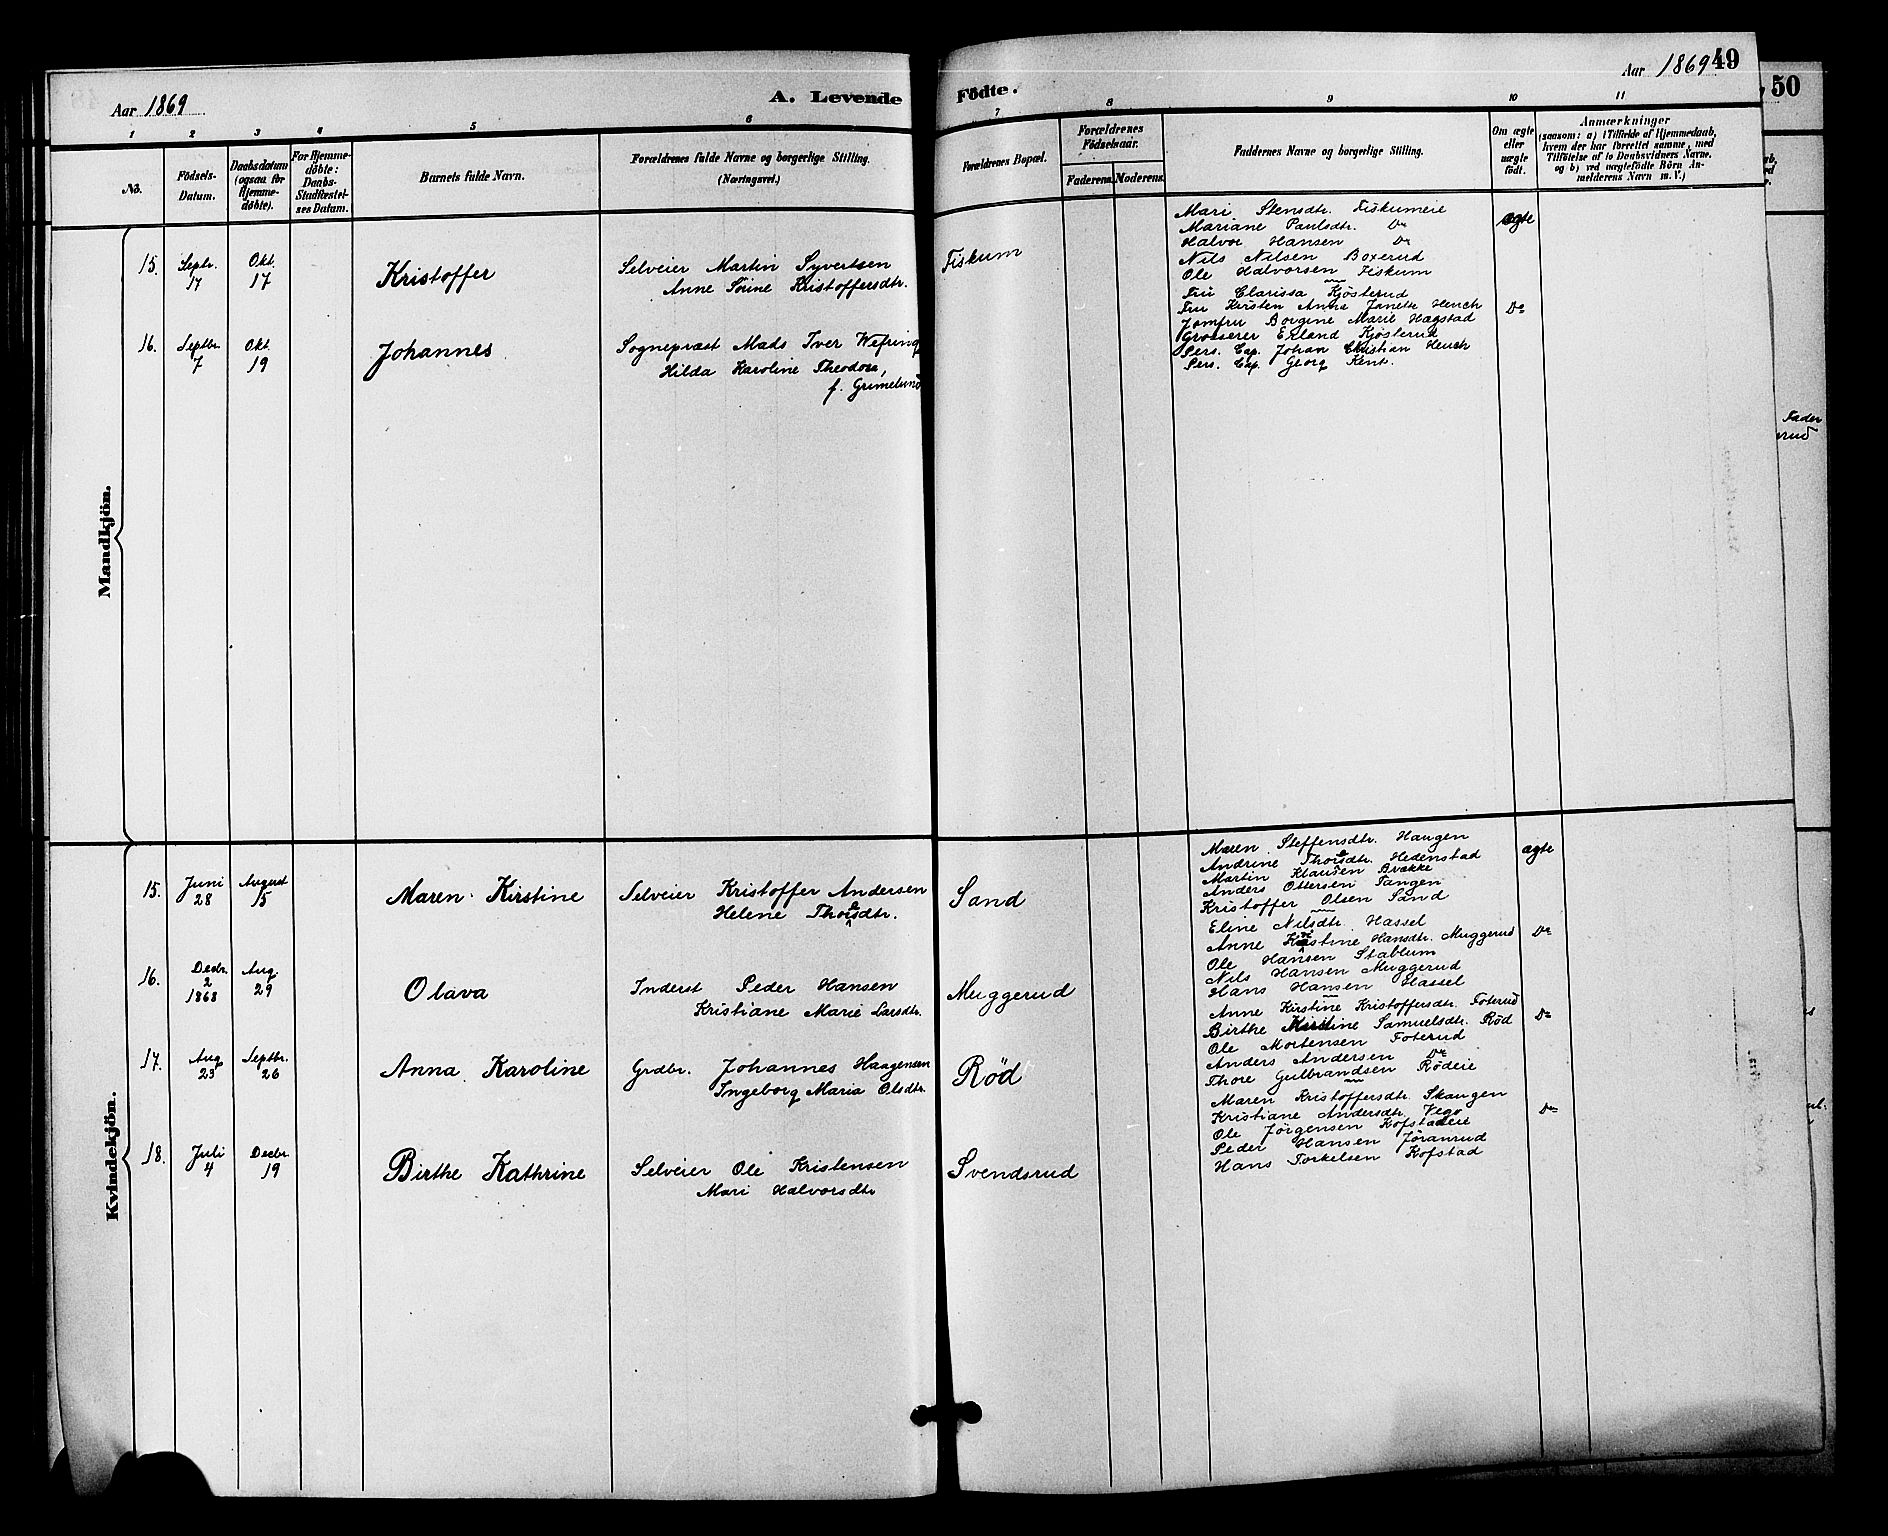 Aar 1869
A. Levende Födte.
Aar 1869 49
50
1 2 3 4 5 6 7 8 9 10 11
No.
Födsels-Datum.
Daabsdatum (ogsaa för Hjemme-döbte).
For Hjemme-döbte: Daabs-Stadfæstel-ses Datum.
Barnets fulde Navn.
Forældrenes fulde Navne og borgerlige Stilling. (Næringsvei.)
Forældrenes Bopæl.
Forældrenes Födselsaar.
Faderens. Moderens.
Faddernes Navne og borgerlige Stilling.
Om ægte eller uægte födt.
Anmærkninger
(saasom: a) i Tilfælde af Hjemmedaab, hvem der har forrettet samme, med Tilföielse af to Daabsvidners Navne. og b) ved uægtefödte Börn An-melderens Navn m. V.)
Mandkjön.
15. Septr. 17 Okt. 17 Kristoffer
Selveier Martin Syvertsen
Anne Sørine Kristoffersdtr.
Fiskum
Mari Stensdtr. Fiskumeie
Mariane Paulsdtr. Do
Halvor Hansen Do
Nils Nilsen Boxerud
Ole Halvorsen Fiskum
ægte
16. Septbr. 7 Okt. 19 Johannes
Sognepræst Mads Iver Wefring
Hilda Karoline Theodora,
f. Grimelund
Fru Clarissa Kjösterud
Fru Kirsten Anna Janette Heuch
Jomfru Borgine Marie Hagstad
Grosserer Erland Kjösterud
Pers. Cap. Johan Christian Heuch
Pers. Cap. Georg Kent.
Do
Kvindekjön.
15. Juni 28 August 15 Maren Kirstine
Selveier Kristoffer Andersen
Helene Thorsdtr.
Sand
Maren Steffensdtr. Haugen
Andrine Thorsdtr. Hedenstad
Martin Klausen Bvække
Anders Ottersen Tangen
Kristoffer Olsen Sand
ægte
16. Decbr. 2 1868 Aug. 29 Olava
Inderst Peder Hansen
Kristiane Marie Larsdtr.
Muggerud
Eline Nilsdtr. Hassel
Anne Kirstine Hansdtr. Muggerud
Ole Hansen Stablum
Nils Hansen Muggerud
Hans Hansen Hassel
Do
17. Aug. 23 Septbr. 26 Anna Karoline
Grdbr. Johannes Haagensen
Ingeborg Maria Olsdtr.
Röd
Anne Kirstine Kristoffersdtr. Foterud
Birthe Kirstine Samuelsdtr. Röd
Ole Mortensen Foterud
Anders Andersen Do
Thore Gulbrandsen Rödeie
Do
18. Juli 4 Decbr. 19 Birthe Kathrine
Selveier Ole Kristensen
Mari Halvorsdtr
Svendsrud
Maren Kristoffersdtr. Skaugen
Kristiane Andersdtr. Vego
Ole Jörgensen Kofstadeie
Peder Hansen Jöranrud
Hans Torkelsen Kofstad
Do
Fader